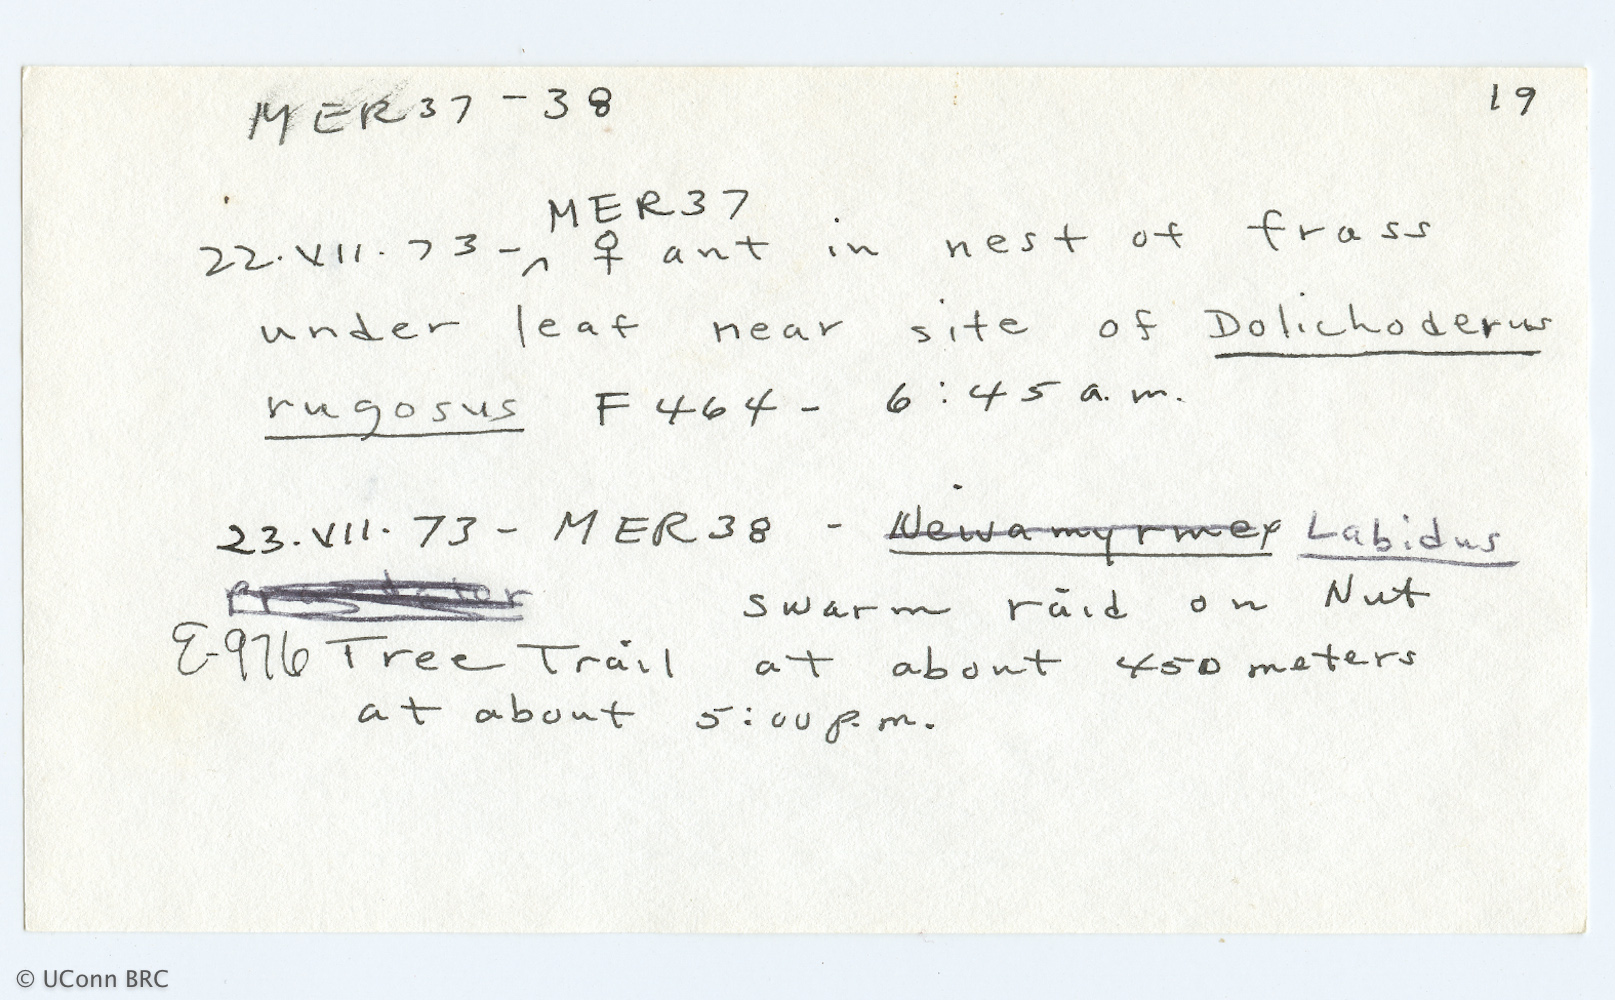 MER37-38 19
MER37
22.VII.73-^ ♀ ant in nest of frass
under leaf near site of Dolichoderus
rugosus F464- 6:45 a.m.
23.VII.73- MER38 - Neivamyrmex Labidus
praedator swarm raid on Nut
E-976 Tree Trail at about 450 meters
at about 5:00 p.m.
© UConn BRC